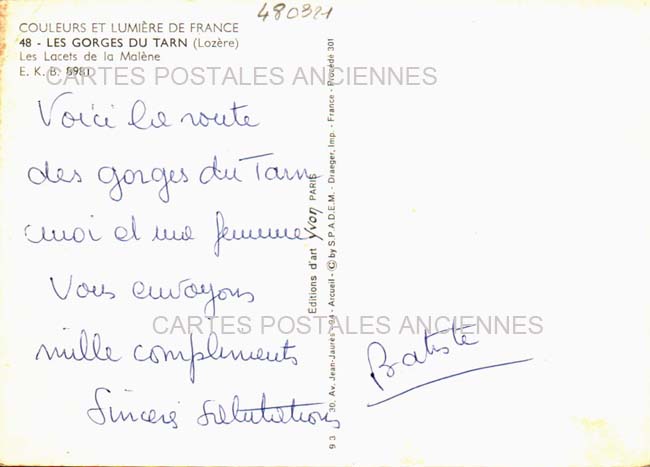 480321
COULEURS ET LUMIÈRE DE FRANCE
48 - LES GORGES DU TARN (Lozère)
Les Lacets de la Malène
E. K. B. 8981
CARTES POSTALES ANCIENNES
Voici la route
des gorges du Tarn
moi et ma femme
Vous envoyons
CARTES POSTALES ANCIENNES
mille compliments
Sincers salutations
Batiste
Editions d'art yvon PARIS
93 30, Av. Jean-Jaurès - Arcueil - © by S.P.A.D.E.M. - Draeger, Imp. - France - Procédé 301